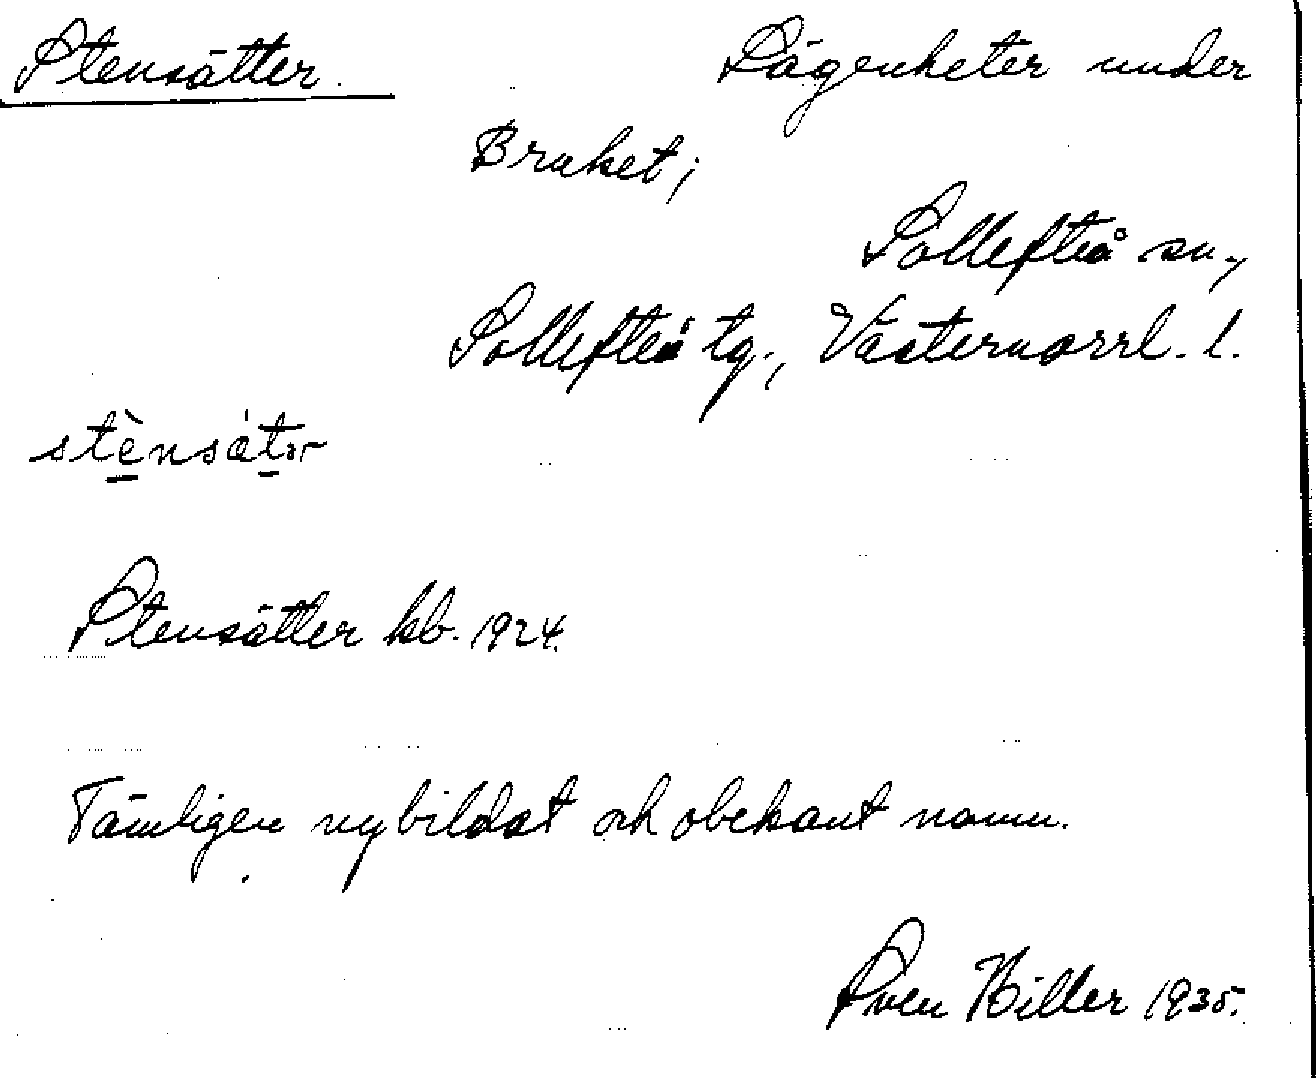 Stensätter.
Lägenheter under
Bruket;
Sollefteå sn.,
Sollefteå tg., Västernorrl. l.
stènsátər
Stensätter kb. 1924.
Tämligen nybildat och obekant namn.
Sven Hiller 1935.